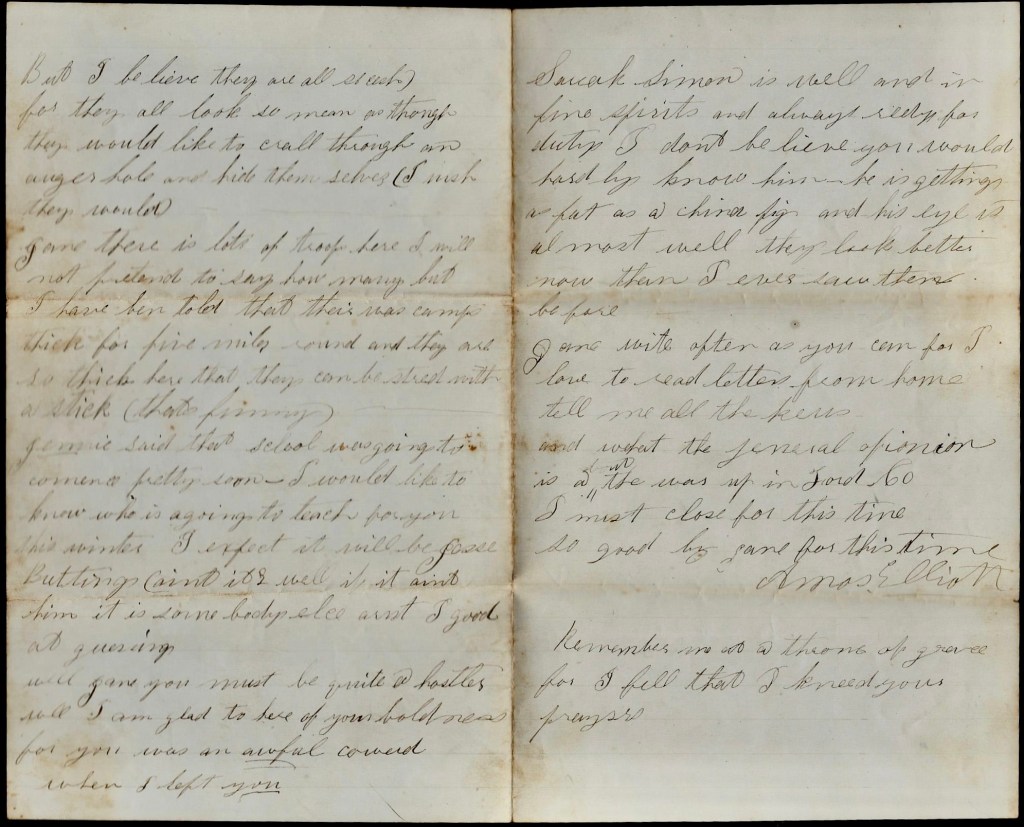 But I be lieve they are all secesh)
for they all look so mean as though
they would like to crall through an
auger hole and hide them selves (I wish
they would)
Jane there is lots of troop here I will
not pretend to say how many but
I have ben told that their was camps
thick for five miles round and they are
so thick here that they can be stired with
a stick (thats funny)
Jennie said that scool was going to
comence pretty soon - I would like to
know who is agoing to teach for you
this winter I expect it will be Jesse
Buttings (aint it? well if it aint
him it is some body else aint I good
at guesing
well Jane you must be quite a hostler
well I am glad to here of your bold ness
for you was an awful coward
when I left you
Simon is well and in
fine spirits and always redy for
duty I dont be lieve you would
hard ly know him - he is getting
as fat as a china pig and his eye is
al most well they look better
now than I ever saw them
be fore
Jane wite often as you can for I
love to read letters from home
tell me all the news
and what the jeneral opionion
is a the was up in Ford Co
I must close for this time
so good by Jane for this time
Amos Elliott
Remember me at a throne of grace
for I fell that I kneed your
prayers